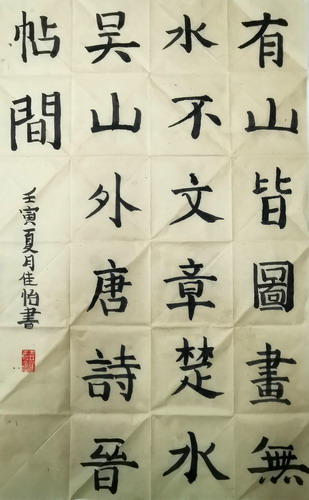 有山皆圖畫無
水不文章楚水
吴山外唐詩晉
帖間
壬寅夏月佳怡書